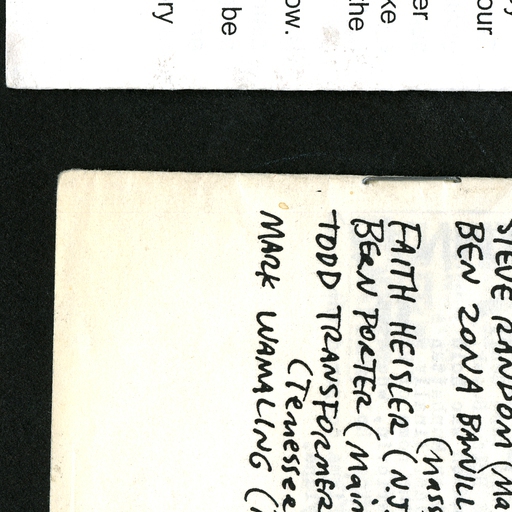 our
er
ke
the
ow.
be
ry
STEVE RANDOM (Ma
BEN ZONA BANVILL
(Mass
FAITH HEISLER (N.J.
BERN PORTER (Main
TODD TRANSFORMER
(Tennessee
MARK WAMALING (